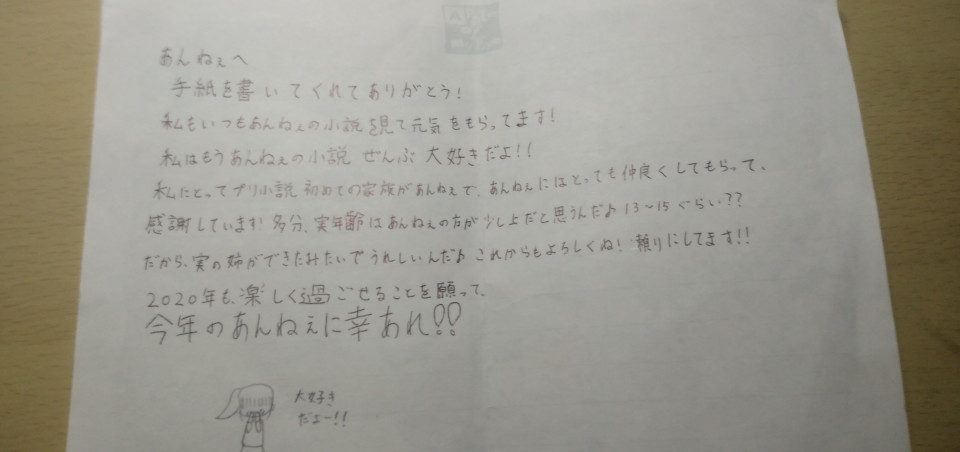 あんねぇへ
手紙を書いてくれてありがとう!
私もいつもあんねぇの小説を見て元気をもらってます!
私はもうあんねぇの小説 ぜんぶ 大好きだよ!!
私にとってプリ小説 初めての家族があんねぇで、あんねぇにはとっても仲良くしてもらって、
感謝しています! 多分、実年齢はあんねぇの方が少し上だと思うんだ♪ 13~15ぐらい??
だから、実の姉ができたみたいでうれしいんだ♪ これからもよろしくね! 頼りにしてます!!
2020年も、楽しく過ごせることを願って、
今年のあんねぇに幸あれ!!
大好き
だよー!!